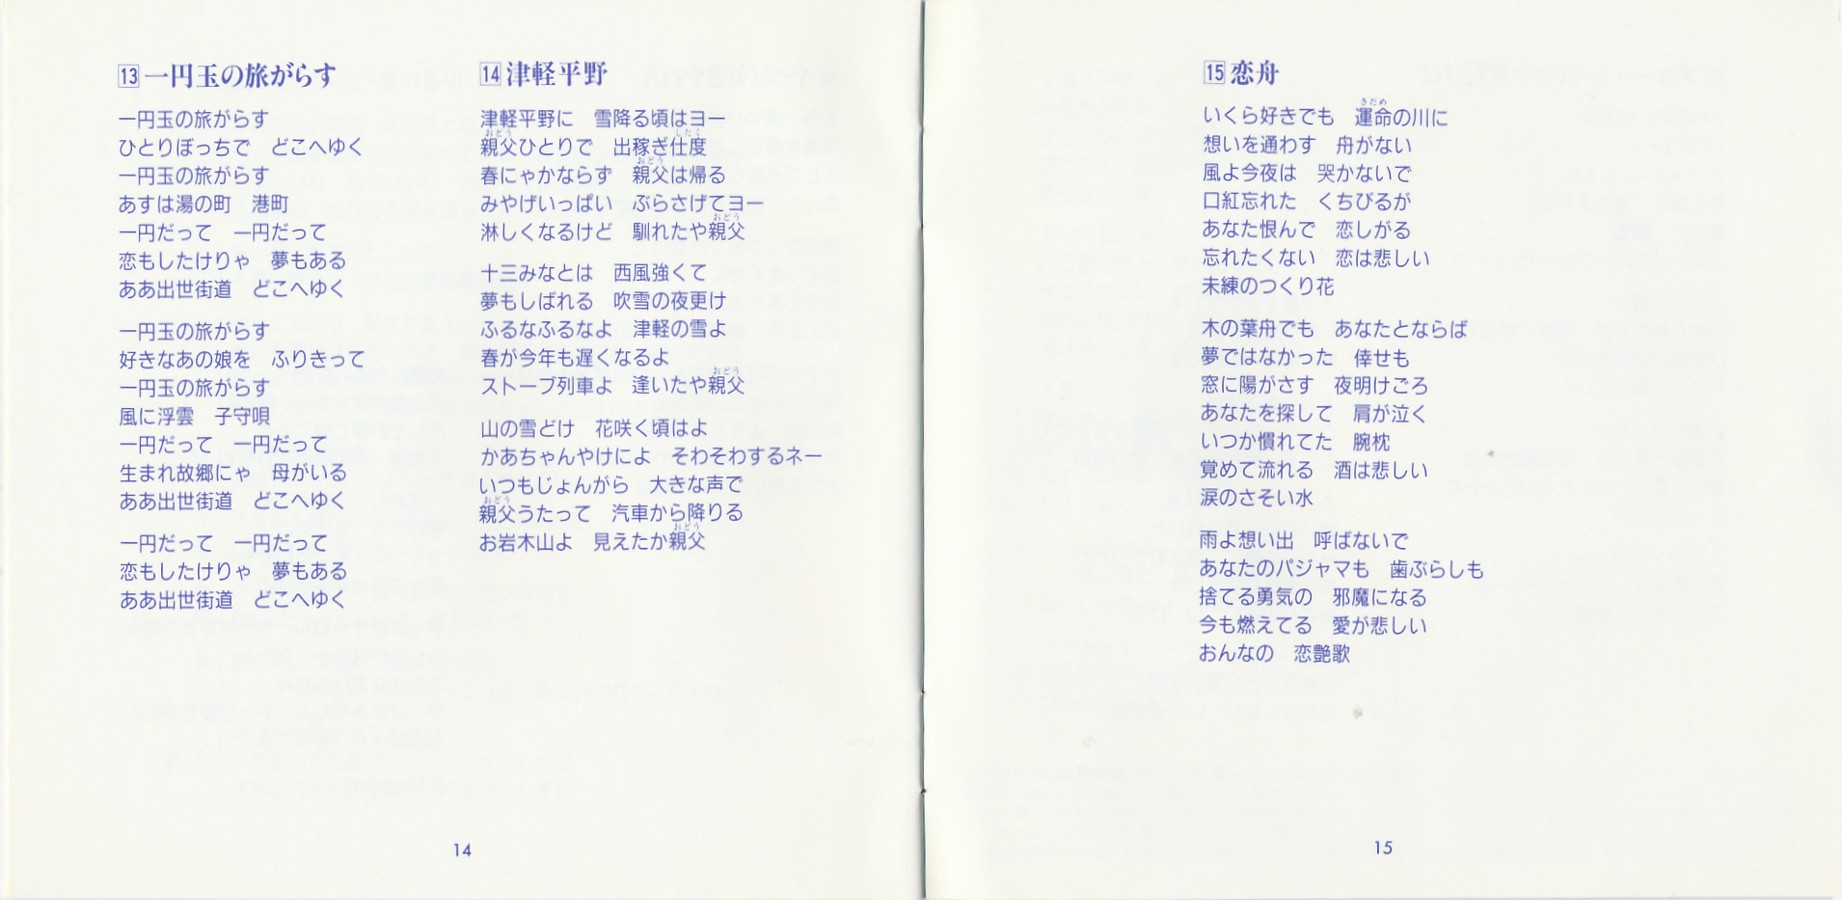 13 一円玉の旅がらす
一円玉の旅がらす
ひとりぼっちで　どこへゆく
一円玉の旅がらす
あすは湯の町　港町
一円だって　一円だって
恋もしたけりゃ　夢もある
ああ出世街道　どこへゆく
一円玉の旅がらす
好きなあの娘を　ふりきって
一円玉の旅がらす
風に浮雲　子守唄
一円だって　一円だって
生まれ故郷にゃ　母がいる
ああ出世街道　どこへゆく
一円だって　一円だって
恋もしたけりゃ　夢もある
ああ出世街道　どこへゆく
14 津軽平野
津軽平野に　雪降る頃はヨー
おどう　したく
親父ひとりで　出稼ぎ仕度
おどう
春にゃかならず　親父は帰る
みやげいっぱい　ぶらさげてヨー
おどう
淋しくなるけど　馴れたや親父
十三みなとは　西風強くて
夢もしばれる　吹雪の夜更け
ふるなふるなよ　津軽の雪よ
春が今年も遅くなるよ
おどう
ストーブ列車よ　逢いたや親父
山の雪どけ　花咲く頃はよ
かあちゃんやけによ　そわそわするネー
いつもじょんがら　大きな声で
おどう
親父うたって　汽車から降りる
おどう
お岩木山よ　見えたか親父
14
15 恋舟
さだめ
いくら好きでも　運命の川に
想いを通わす　舟がない
風よ今夜は　哭かないで
口紅忘れた　くちびるが
あなた恨んで　恋しがる
忘れたくない　恋は悲しい
未練のつくり花
木の葉舟でも　あなたとならば
夢ではなかった　倖せも
窓に陽がさす　夜明けごろ
あなたを探して　肩が泣く
いつか慣れてた　腕枕
覚めて流れる　酒は悲しい
涙のさそい水
雨よ想い出　呼ばないで
あなたのパジャマも　歯ぶらしも
捨てる勇気の　邪魔になる
今も燃えてる　愛が悲しい
おんなの　恋艶歌
15